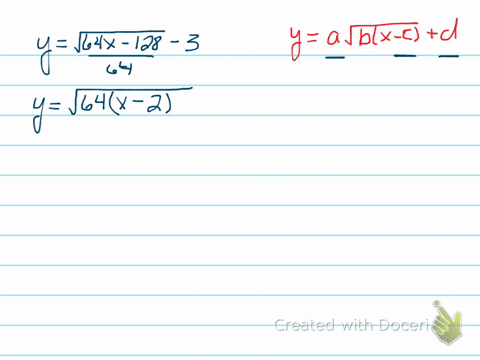 y = √(64x - 128) - 3
64
y = √(64(x - 2)
y = a√(b(x-c)) + d
Created with Doceri